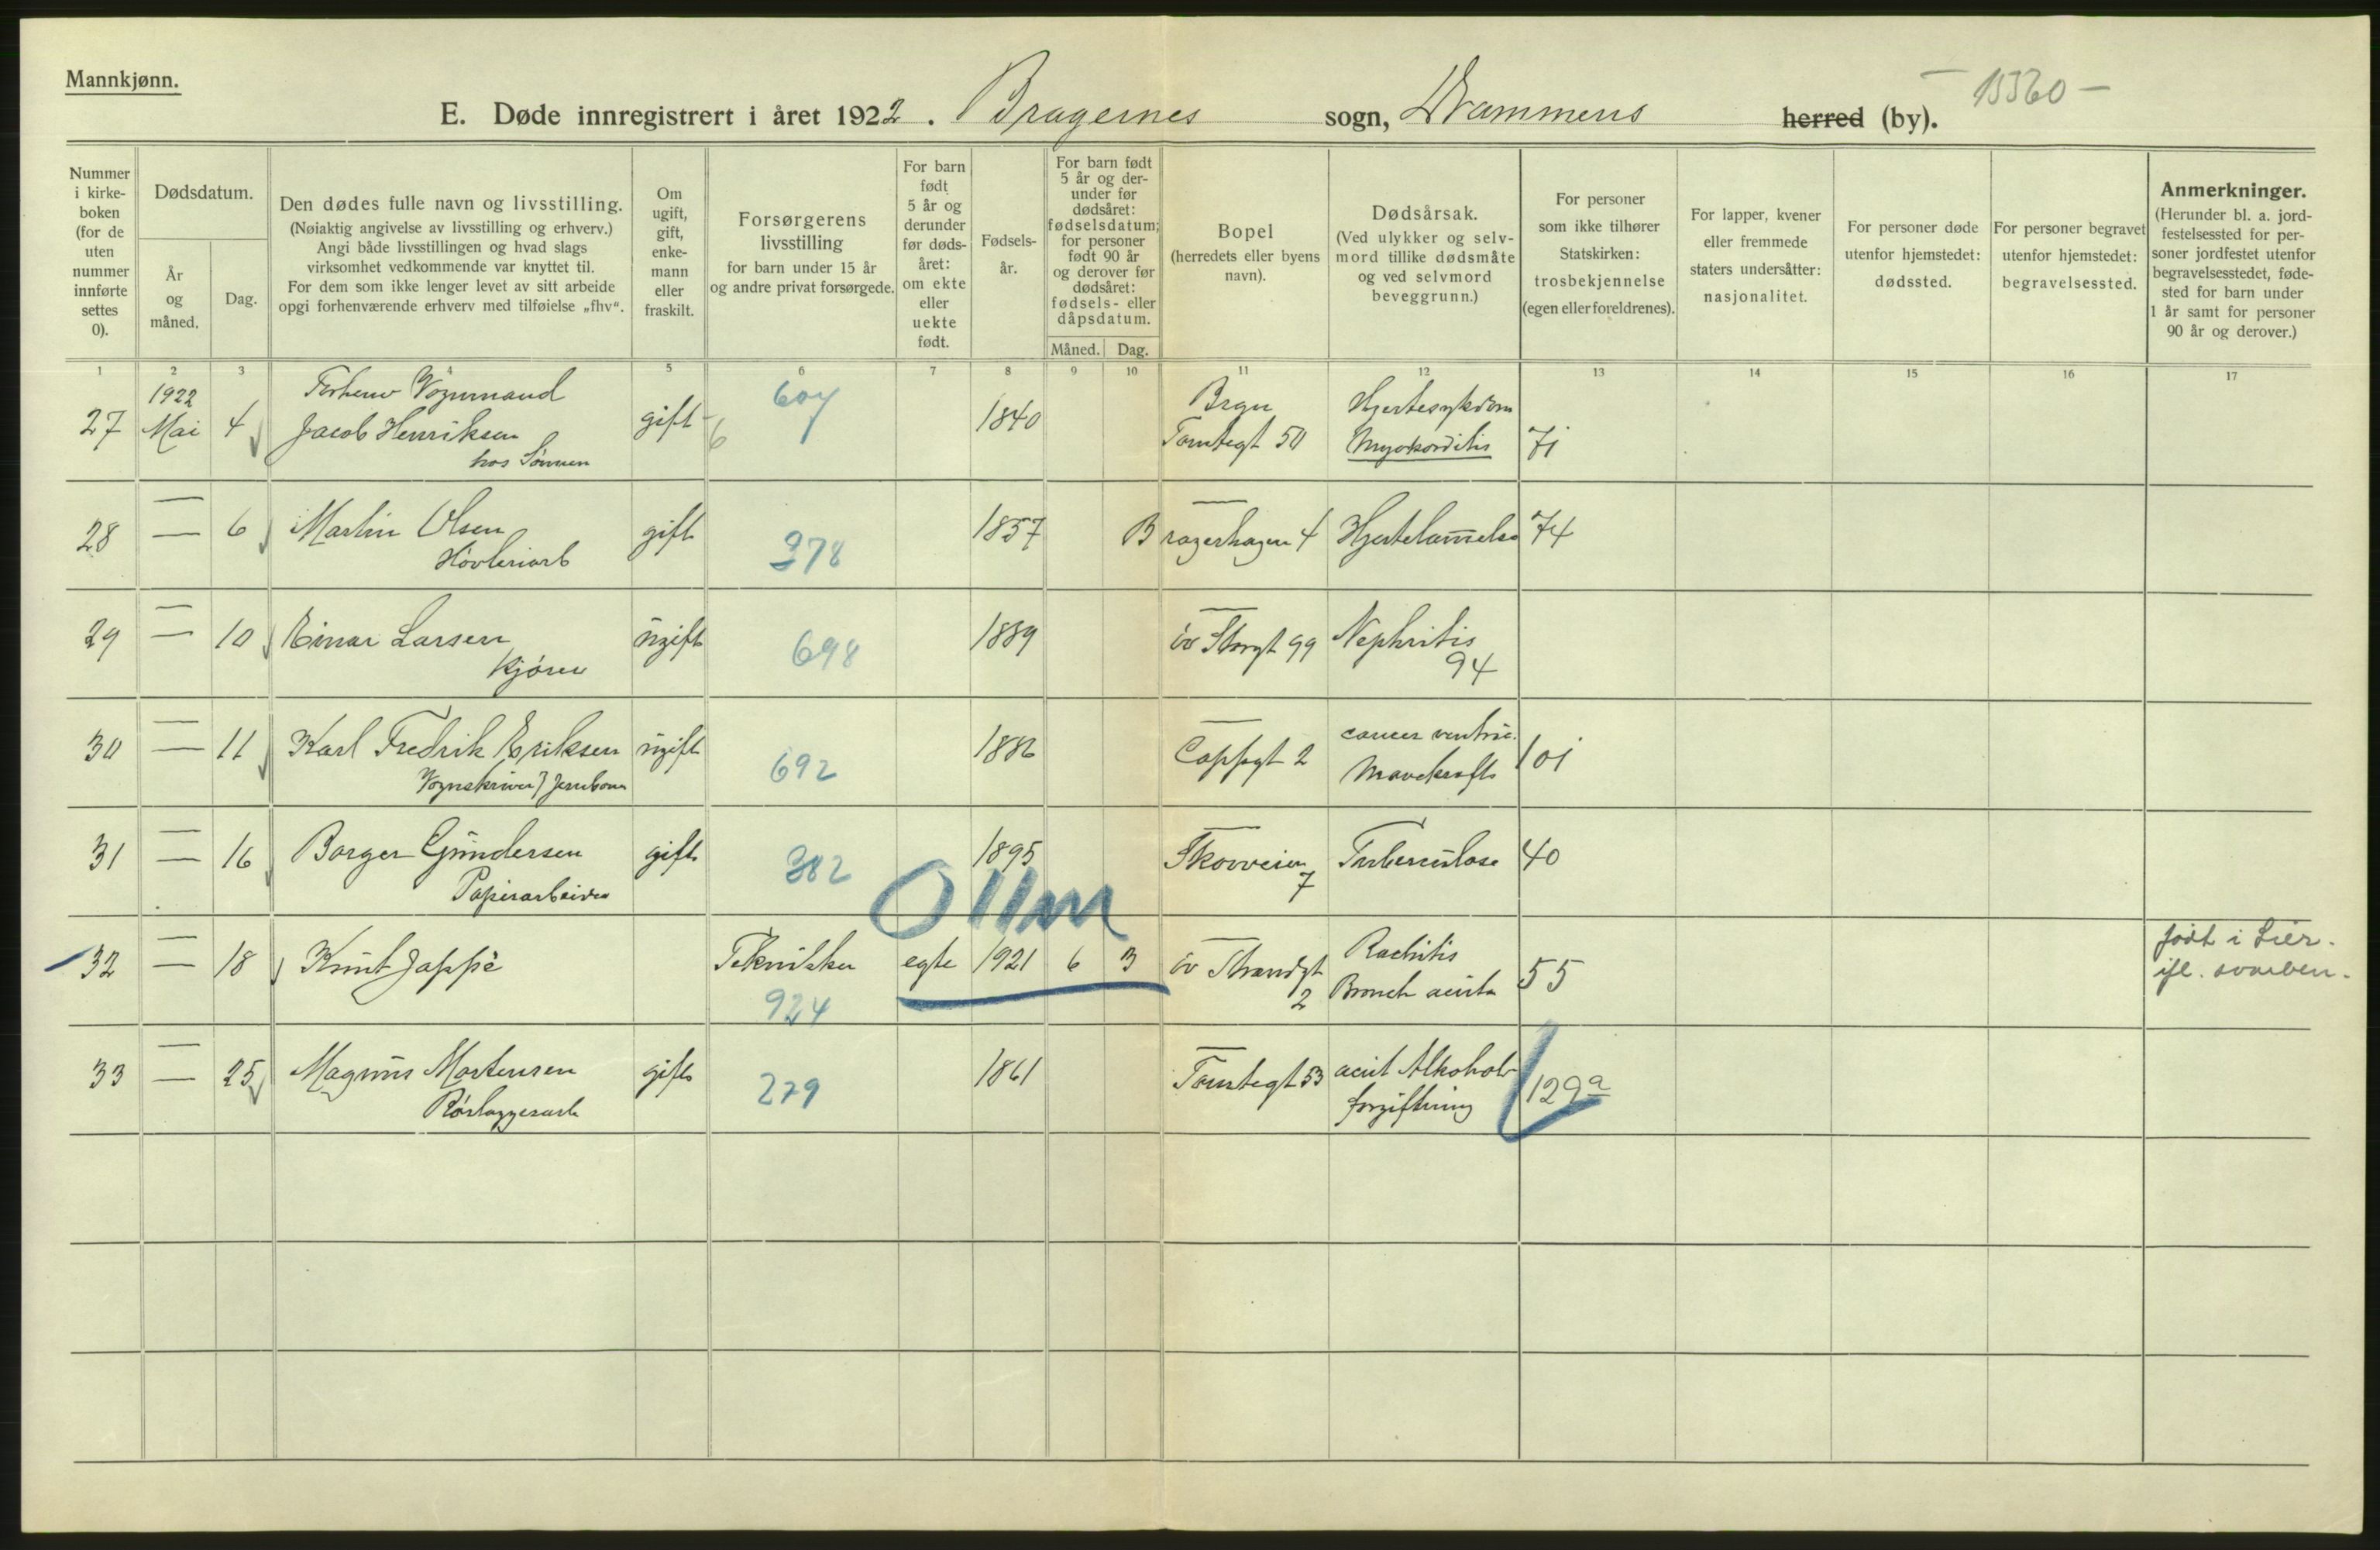 Mannkjønn.
E. Døde innregistrert i året 1922. Bragernes sogn, Drammens herred (by). 15360 —
Nummer i kirkeboken (for de uten nummer innførte settes 0).
Dødsdatum.
År og måned.
Dag.
Den dødes fulle navn og livsstilling.
(Nøiaktig angivelse av livsstilling og erhverv.)
Angi både livsstillingen og hvad slags
virksomhet vedkommende var knyttet til.
For dem som ikke lenger levet av sitt arbeide
opgi forhenværende erhverv med tilføielse „fhv“.
Om ugift, gift, enkemann eller fraskilt.
Forsørgerens livsstilling
for barn under 15 år
og andre privat forsørgede.
For barn født 5 år og derunder før dødsåret: om ekte eller uekte født.
Fødselsår.
For barn født 5 år og derunder før dødsåret: fødselsdatum; for personer født 90 år og derover før dødsåret: fødsels- eller dåpsdatum.
Måned. Dag.
Bopel
(herredets eller byens navn).
Dødsårsak.
(Ved ulykker og selvmord tillike dødsmåte og ved selvmord beveggrunn.)
For personer som ikke tilhører Statskirken: trosbekjennelse (egen eller foreldrenes).
For lapper, kvener eller fremmede staters undersåtter: nasjonalitet.
For personer døde utenfor hjemstedet: dødssted.
For personer begravet utenfor hjemstedet: begravelsessted.
Anmerkninger.
(Herunder bl. a. jordfestelsessted for personer jordfestet utenfor begravelsesstedet, fødested for barn under 1 år samt for personer 90 år og derover.)
1 2 3 4 5 6 7 8 9 10 11 12 13 14 15 16 17
1922 Forhenv Vognmand 604 Brgn Hjertesykdom
27 Mai 4 Jacob Henriksen gift 6 1840 Tomtegt 50 Myokorditis 71
hos Sønnen
28 — 6 Martin Olsen gift 278 1857 Bragerhagen 4 Hjertelammelse 74
Høvleriarb
29 — 10 Einar Larsen ugift 698 1889 öv Storgt 99 Nephritis
Kjører 94
30 — 11 Karl Fredrik Eriksen ugift 692 1886 Cappgt 2 cancer ventric.
Vognskriver v Jernbanen Mavekræft 101
31 — 16 Borger Gundersen gift 382 1895 Skovveien 7 Tuberculose 40
Papirarbeider
32 — 18 Knut Jappe Tekniker egte 1921 6 3 öv Strandgt 2 Rachitis
924 Bronch acuta 55
født i Lier.
ifl. svarbrev.
33 — 25 Magnus Mortensen gift 279 1861 Tomtegt 53 acut Alkohol-
Rørlæggerarb forgiftning 129a